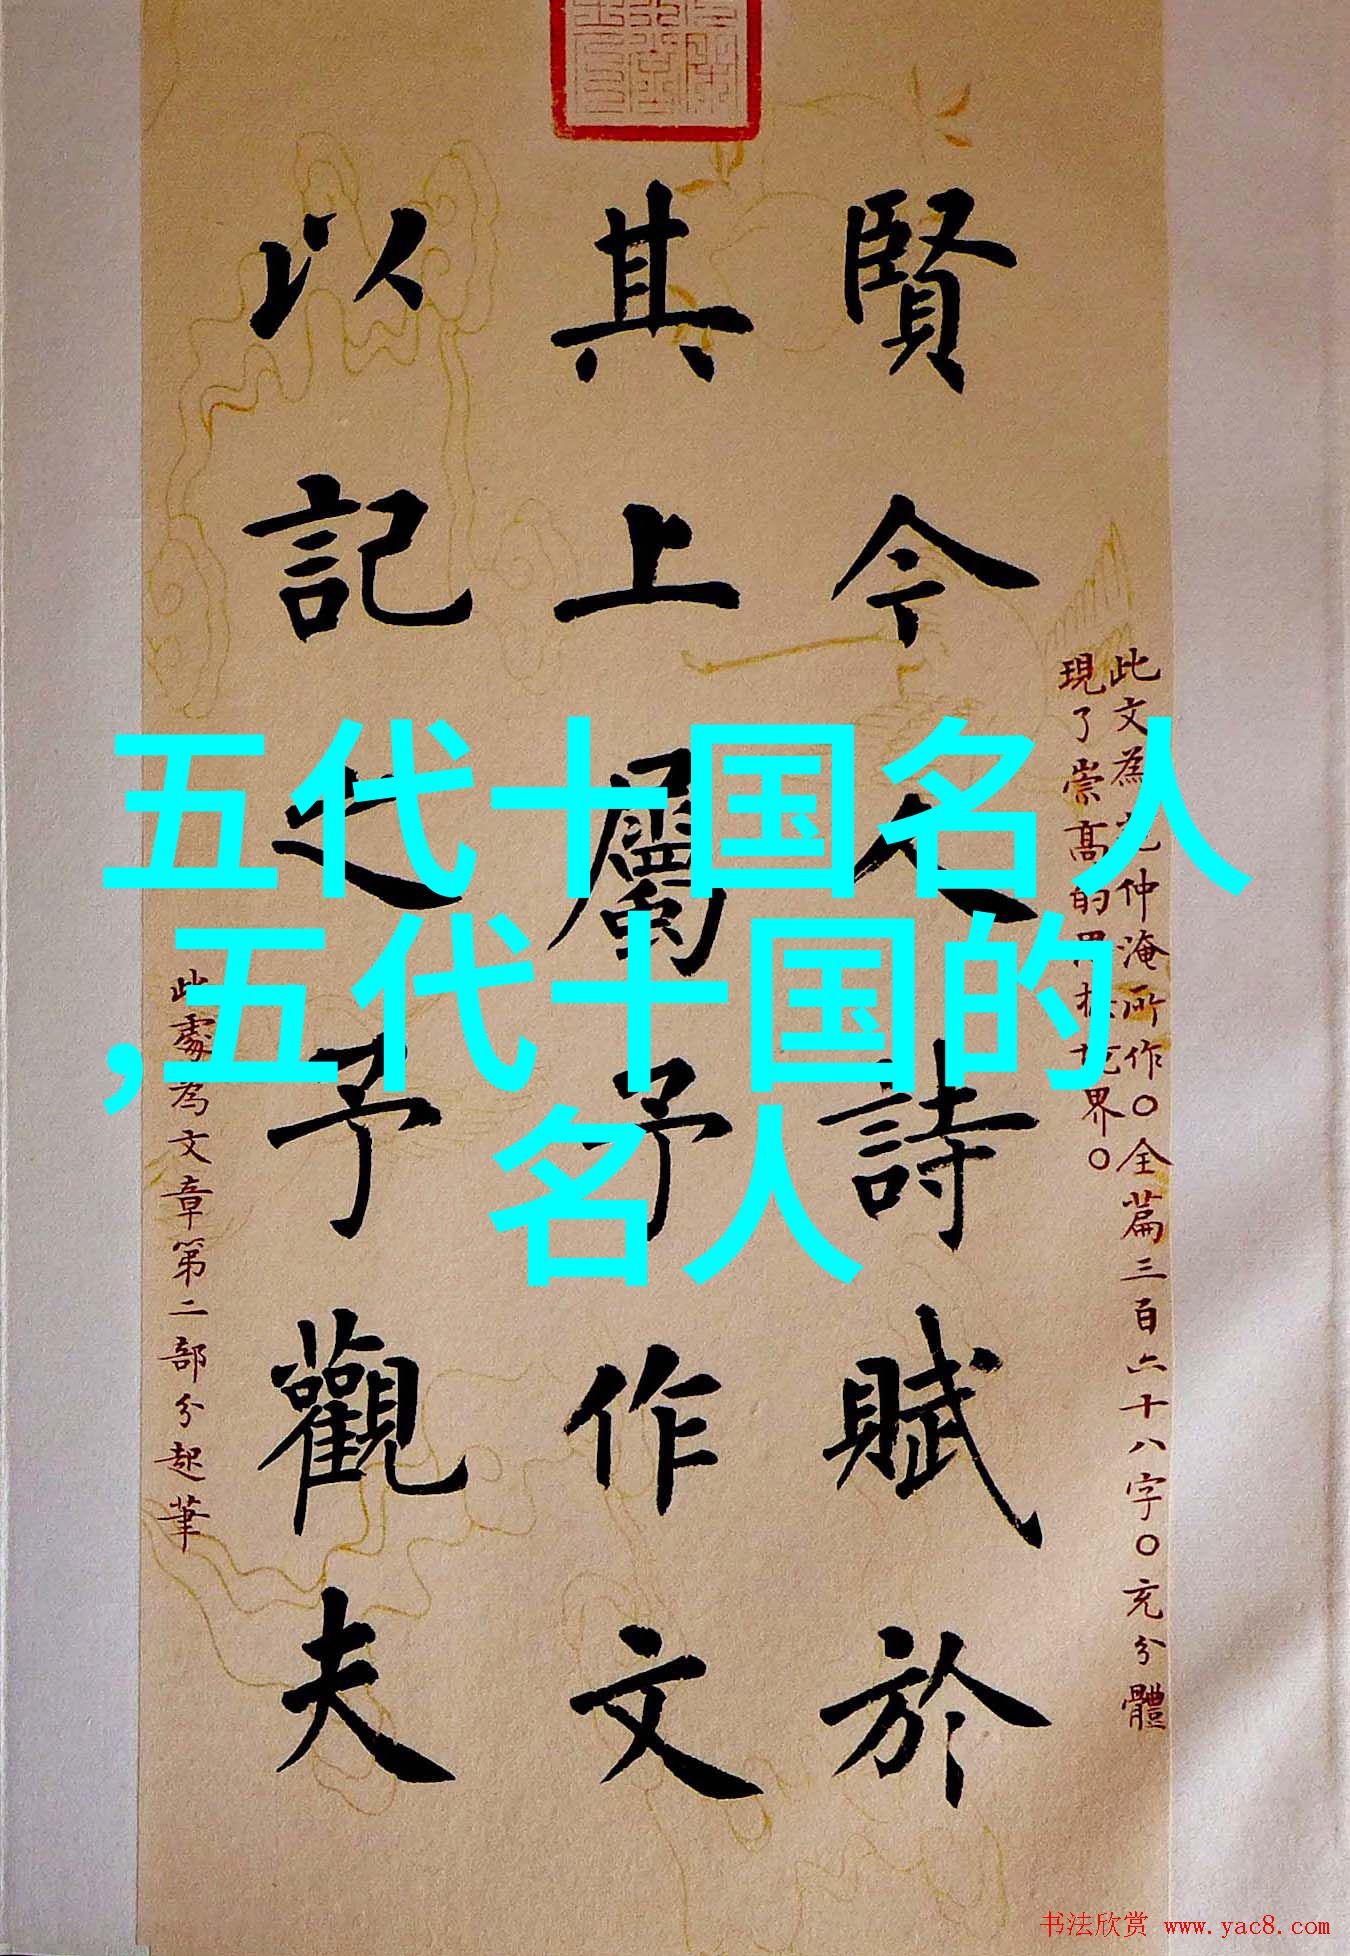 五代十国名人
,五代十国的
名人
此文為仲淹所作〇全篇三百六十八字〇充分體
現了崇高的界〇
賢今人詩賦於
其上屬予作文
以記之予觀夫
此處為文章第二部分起筆
书法欣赏 www.yac8.com